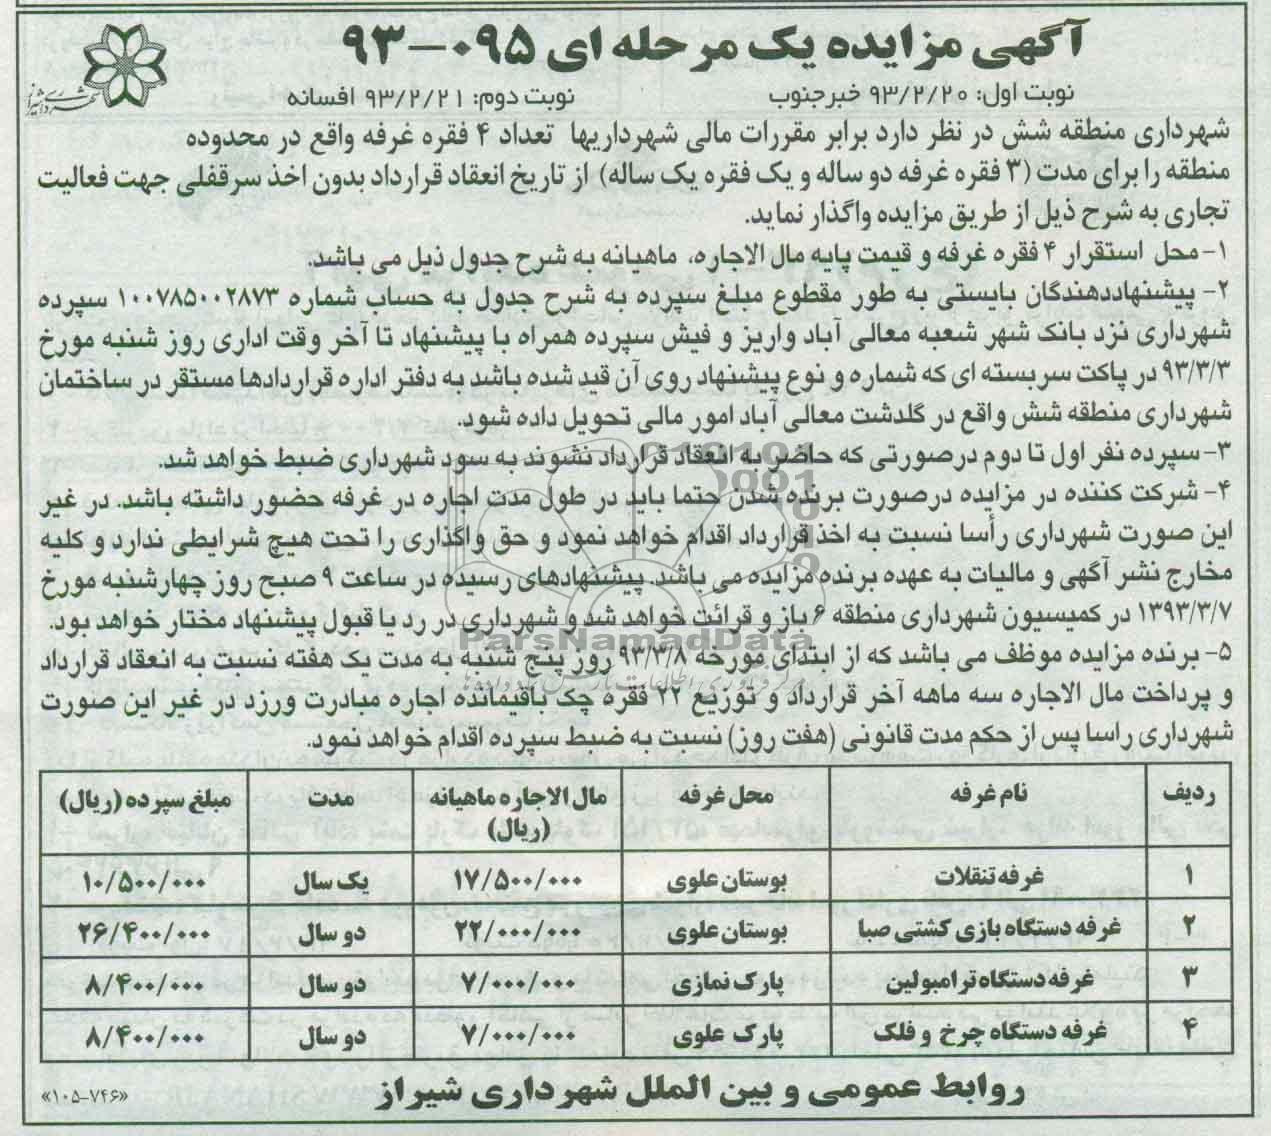 آگهی مزایده یک مرحله ای ۰۹۵-۹۳
شهرداری شیراز
نوبت اول: ۹۳/۲/۲۰ خبرجنوب نوبت دوم: ۹۳/۲/۲۱ افسانه
شهرداری منطقه شش در نظر دارد برابر مقررات مالی شهرداریها تعداد ۴ فقره غرفه واقع در محدوده
منطقه را برای مدت (۳ فقره غرفه دو ساله و یک فقره یک ساله) از تاریخ انعقاد قرارداد بدون اخذ سرقفلی جهت فعالیت
تجاری به شرح ذیل از طریق مزایده واگذار نماید.
۱- محل استقرار ۴ فقره غرفه و قیمت پایه مال الاجاره، ماهیانه به شرح جدول ذیل می باشد.
۲- پیشنهاددهندگان بایستی به طور مقطوع مبلغ سپرده به شرح جدول به حساب شماره ۱۰۰۷۸۵۰۰۲۸۷۳ سپرده
شهرداری نزد بانک شهر شعبه معالی آباد واریز و فیش سپرده همراه با پیشنهاد تا آخر وقت اداری روز شنبه مورخ
۹۳/۳/۳ در پاکت سربسته ای که شماره و نوع پیشنهاد روی آن قید شده باشد به دفتر اداره قراردادها مستقر در ساختمان
شهرداری منطقه شش واقع در گلدشت معالی آباد امور مالی تحویل داده شود.
۳- سپرده نفر اول تا دوم درصورتی که حاضر به انعقاد قرارداد نشوند به سود شهرداری ضبط خواهد شد.
۴- شرکت کننده در مزایده درصورت برنده شدن حتما باید در طول مدت اجاره در غرفه حضور داشته باشد. در غیر
این صورت شهرداری رأسا نسبت به اخذ قرارداد اقدام خواهد نمود و حق واگذاری را تحت هیچ شرایطی ندارد و کلیه
مخارج نشر آگهی و مالیات به عهده برنده مزایده می باشد. پیشنهادهای رسیده در ساعت ۹ صبح روز چهارشنبه مورخ
۱۳۹۳/۳/۷ در کمیسیون شهرداری منطقه ۶ باز و قرائت خواهد شد و شهرداری در رد یا قبول پیشنهاد مختار خواهد بود.
ParsNamadData
۵- برنده مزایده موظف می باشد که از ابتدای مورخه ۹۳/۳/۸ روز پنج شنبه به مدت یک هفته نسبت به انعقاد قرارداد
و پرداخت مال الاجاره سه ماهه آخر قرارداد و توزیع ۲۲ فقره چک باقیمانده اجاره مبادرت ورزد در غیر این صورت
شهرداری راسا پس از حکم مدت قانونی (هفت روز) نسبت به ضبط سپرده اقدام خواهد نمود.
ردیف نام غرفه محل غرفه مال الاجاره ماهیانه (ریال) مدت مبلغ سپرده (ریال)
۱ غرفه تنقلات بوستان علوی ۱۷/۵۰۰/۰۰۰ یک سال ۱۰/۵۰۰/۰۰۰
۲ غرفه دستگاه بازی کشتی صبا بوستان علوی ۲۲/۰۰۰/۰۰۰ دو سال ۲۶/۴۰۰/۰۰۰
۳ غرفه دستگاه ترامبولین پارک نمازی ۷/۰۰۰/۰۰۰ دو سال ۸/۴۰۰/۰۰۰
۴ غرفه دستگاه چرخ و فلک پارک علوی ۷/۰۰۰/۰۰۰ دو سال ۸/۴۰۰/۰۰۰
روابط عمومی و بین الملل شهرداری شیراز
«۱۰۵-۷۴۶»